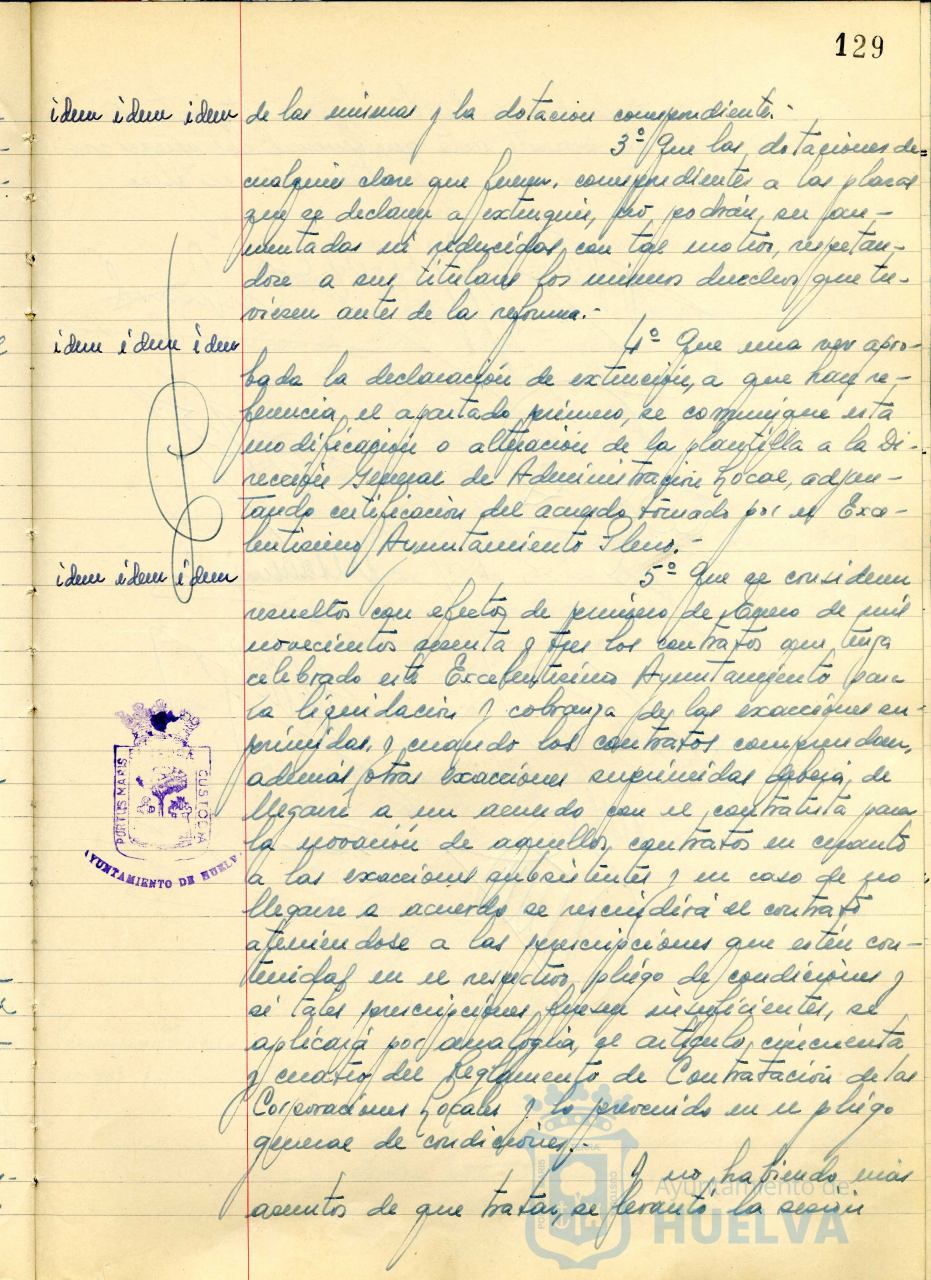 129
idem idem idem de las mismas y la dotacion correspondiente.-
3º Que las dotaciones de
cualquier clase que fueren, correspondientes a las plazas
que se declaren a extinguir, no podrán ser au-
mentadas ni reducidas con tal motivo, respetan-
dose a sus titulares los mismos derechos que tu-
viesen antes de la reforma.-
idem idem idem 4º Que una vez apro-
bada la declaración de extinción, a que hace re-
ferencia el apartado primero, se comunique esta
modificación o alteración de la plantilla a la Di-
rección General de Administración Local, adjun-
tando certificación del acuerdo tomado por el Exce-
lentisimo Ayuntamiento Pleno.-
idem idem idem 5º Que se consideren
resueltos con efectos de primero de Enero de mil
novecientos sesenta y tres los contratos que tenga
celebrado este Excelentisimo Ayuntamiento para
la liquidación y cobranza de las exacciones su-
primidas, y cuando los contratos comprendan,
además otras exacciones suprimidas deberá, de
llegarse a un acuerdo con el contratista para
la novación de aquellos, contratos en cuanto
a las exacciones subsistentes y en caso de no
llegarse a acuerdo se rescindirá el contrato
ateniendose a las prescripciones que estén con-
tenidas en el respectivo pliego de condiciones y
si tales prescripciones fuesen insuficientes, se
aplicará por analogia, el artículo, cincuenta
y cuatro del Reglamento de Contratación de las
Corporaciones Locales y lo prevenido en el pliego
general de condiciones.-
Y no habiendo más
asuntos de que tratar, se levantó la sesión
PORTUS MARIS
CUSTODIA
AYUNTAMIENTO DE HUELVA
Ayuntamiento de
HUELVA